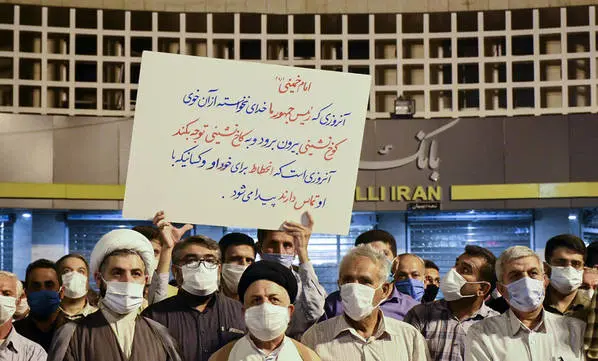 امام خمینی(ره)
آنروزی که رئیس جمهور ما خدای نخواسته از آن خوی
کوخ نشینی بیرون برود و به کاخ نشینی توجه بکند
آنروزی است که انحطاط برای خود او و کسانیکه با
او تماس دارند پیدا می شود .
بانک
LLI IRAN